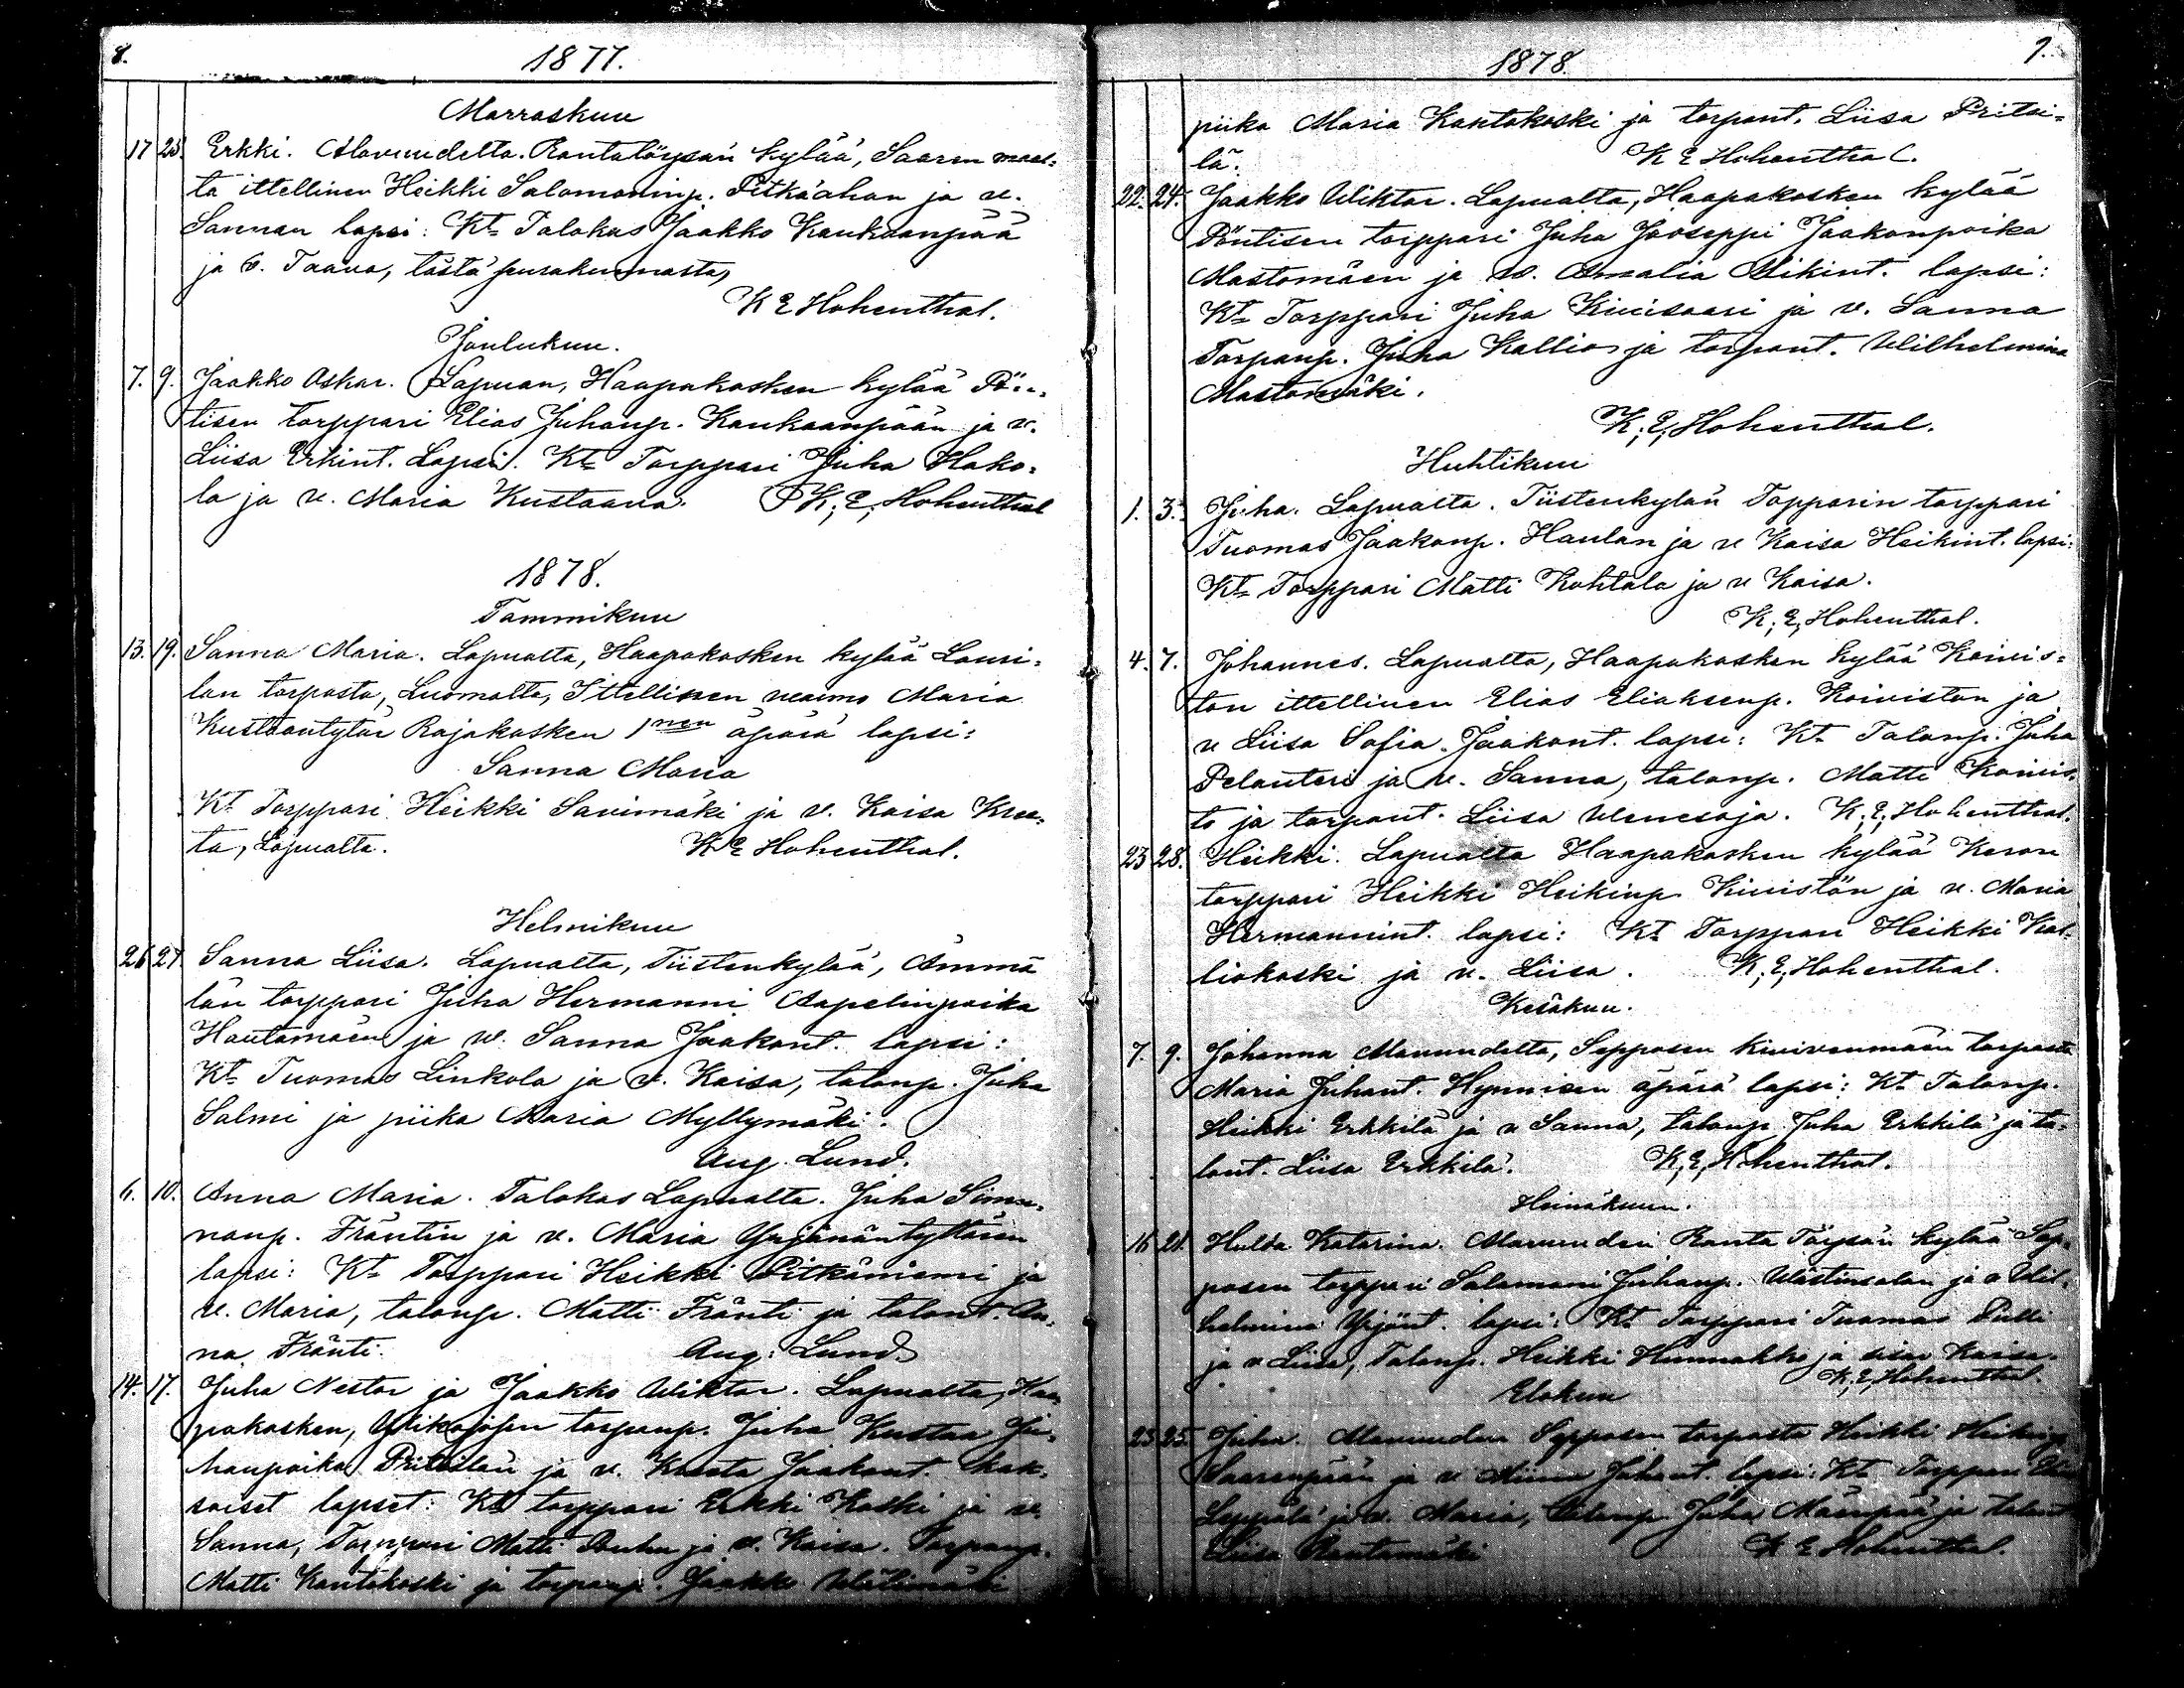 8.
1877.
Marraskuu
17 25. Erkki. Alavuudelta. Rantatöysän kylää, Saaren maal-
ta ittellinen Heikki Salomoninp. Pitkäahan ja v.
Sannan lapsi: Kt. Talokas Jaakko Kaukaanpää
ja v. Taava, tästä seurakunnasta,
K E Hohenthal.
Joulukuu.
7. 9. Jaakko Oskar. Lapuan, Haapakosken kylää Pön-
tisen torppari Elias Juhanp. Kaukaanpään ja v.
Liisa Erkint. Lapsi. Kt. Torppari Juha Hako-
la ja v. Maria Kustaava. K. E. Hohenthal
1878.
Tammikuu
13. 19. Sanna Maria. Lapualta, Haapakosken kylää Lauri-
lan torpasta, Luomalta, Ittellinen vaimo Maria
Kustaantytär Rajakosken 1nen äpärä lapsi:
Sanna Maria
Kt. Torppari Heikki Savimäki ja v. Kaisa Kree-
ta, Lapualta. K E Hohenthal.
Helmikuu
26 27. Sanna Liisa. Lapualta, Tiistenkylää, Ämmä
län torppari Juha Hermanni Aapelinpoika
Hautamäen ja w. Sanna Jaakont. lapsi:
Kt. Tuomas Linkola ja v. Kaisa, talonp. Juha
Salmi ja piika Maria Myllymäki.
Aug. Lund.
6. 10. Anna Maria. Talokas Lapualta. Juha Simu-
nanp. Fräntin ja v. Maria Yrjänäntyttären
lapsi: Kt. Torppari Heikki Pitkäniemi ja
v. Maria, talonp. Matti Fränti ja talont. An-
na Fränti. Aug. Lund
14. 17. Juha Nestor ja Jaakko Wiktor. Lapualta, Haa-
pakosken, torpanp. Juha Kustaa Ju-
hanpoika Pritsilän ja v. Kreeta Jaakont. kak-
soiset lapset: Kt. torppari Erkki Koski ja v.
Sanna, Torppari Matti Rouhu ja v. Kaisa. Torpanp.
Matti Kantokoski ja torpanp. Jaakko Wälimäki
1878.
9.
piika Maria Kantokoski ja torpant. Liisa Pritsi-
lä. K E Hohenthal.
22. 24. Jaakko Wiktor. Lapualta, Haapakosken kylää
Pöntisen torppari Juha Jooseppi Jaakonpoika
Mastomäen ja w. Amalia Mikint. lapsi:
Kt. Torppari Juha Kivisaari ja v. Sanna
Torpanp. Juha Kallio ja torpant. Wilhelmina
Mastomäki.
K. E. Hohenthal.
Huhtikuu
1. 3. Juha. Lapualta. Tiistenkylän Topparin torppari
Tuomas Jaakonp. Haulan ja v Kaisa Heikint. lapsi:
Kt. Torppari Matti Kohtala ja v Kaisa.
K. E. Hohenthal.
4. 7. Johannes. Lapualta, Haapakosken kylää Koivis-
ton ittellinen Elias Eliaksenp. Koiviston ja
v Liisa Sofia Jaakont. lapsi: Kt. Talonp. Juha
Pelanteri ja v. Sanna, talonp. Matti Koivis-
to ja torpant. Liisa Wenesoja. K. E. Hohenthal.
23 28. Heikki. Lapualta Haapakosken kylää Keson
torppari Heikki Heikinp. Kivistön ja v. Maria
Hermannint. lapsi: Kt. Torppari Heikki Kal-
liokoski ja v. Liisa. K. E. Hohenthal.
Kesäkuu.
7. 9. Johanna Alavuudelta, Sepposen torpasta
Maria Juhant. Hynnisen äpärä lapsi: Kt. Talonp.
Heikki Erkkilä ja v Sanna, talonp. Juha Erkkilä ja ta-
lont. Liisa Erkkilä. K. E. Hohenthal.
Heinäkuu.
16 21. Hulda Katarina. Alavuuden Ranta Töysän kylää Sep-
posen torppari Salomoni Juhanp. Wästinsalon ja v Wil-
helmina Yrjönt. lapsi: Kt. Torppari Tuomas Pulli
ja v Liisa, Talonp. Heikki Hunnakko ja sisar Kaisa.
K. E. Hohenthal.
Elokuu
23 25. Juha. Alavuuden Sepposen torpasta Heikki Heikinp
Saarenpään ja v Juhant. lapsi: Kt. Torppari
Seppälä ja v. Maria, talonp Juha Mäenpää ja talont
Liisa Rantamäki K E Hohenthal.